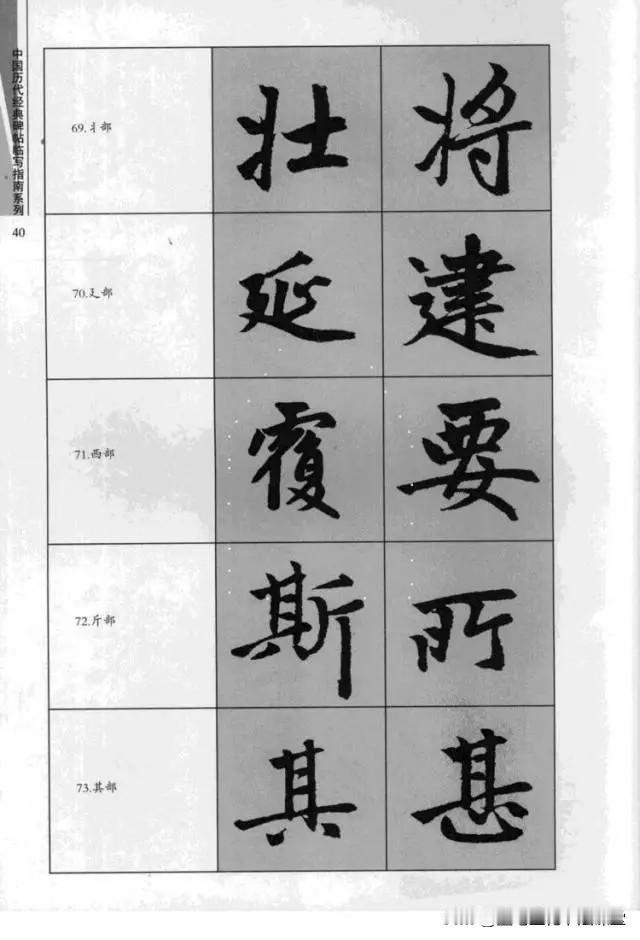 中国历代经典碑帖临写指南系列
40
69.丬部
壮 将
70.廴部
延 建
71.西部
覆 要
72.斤部
斯 所
73.其部
其 甚